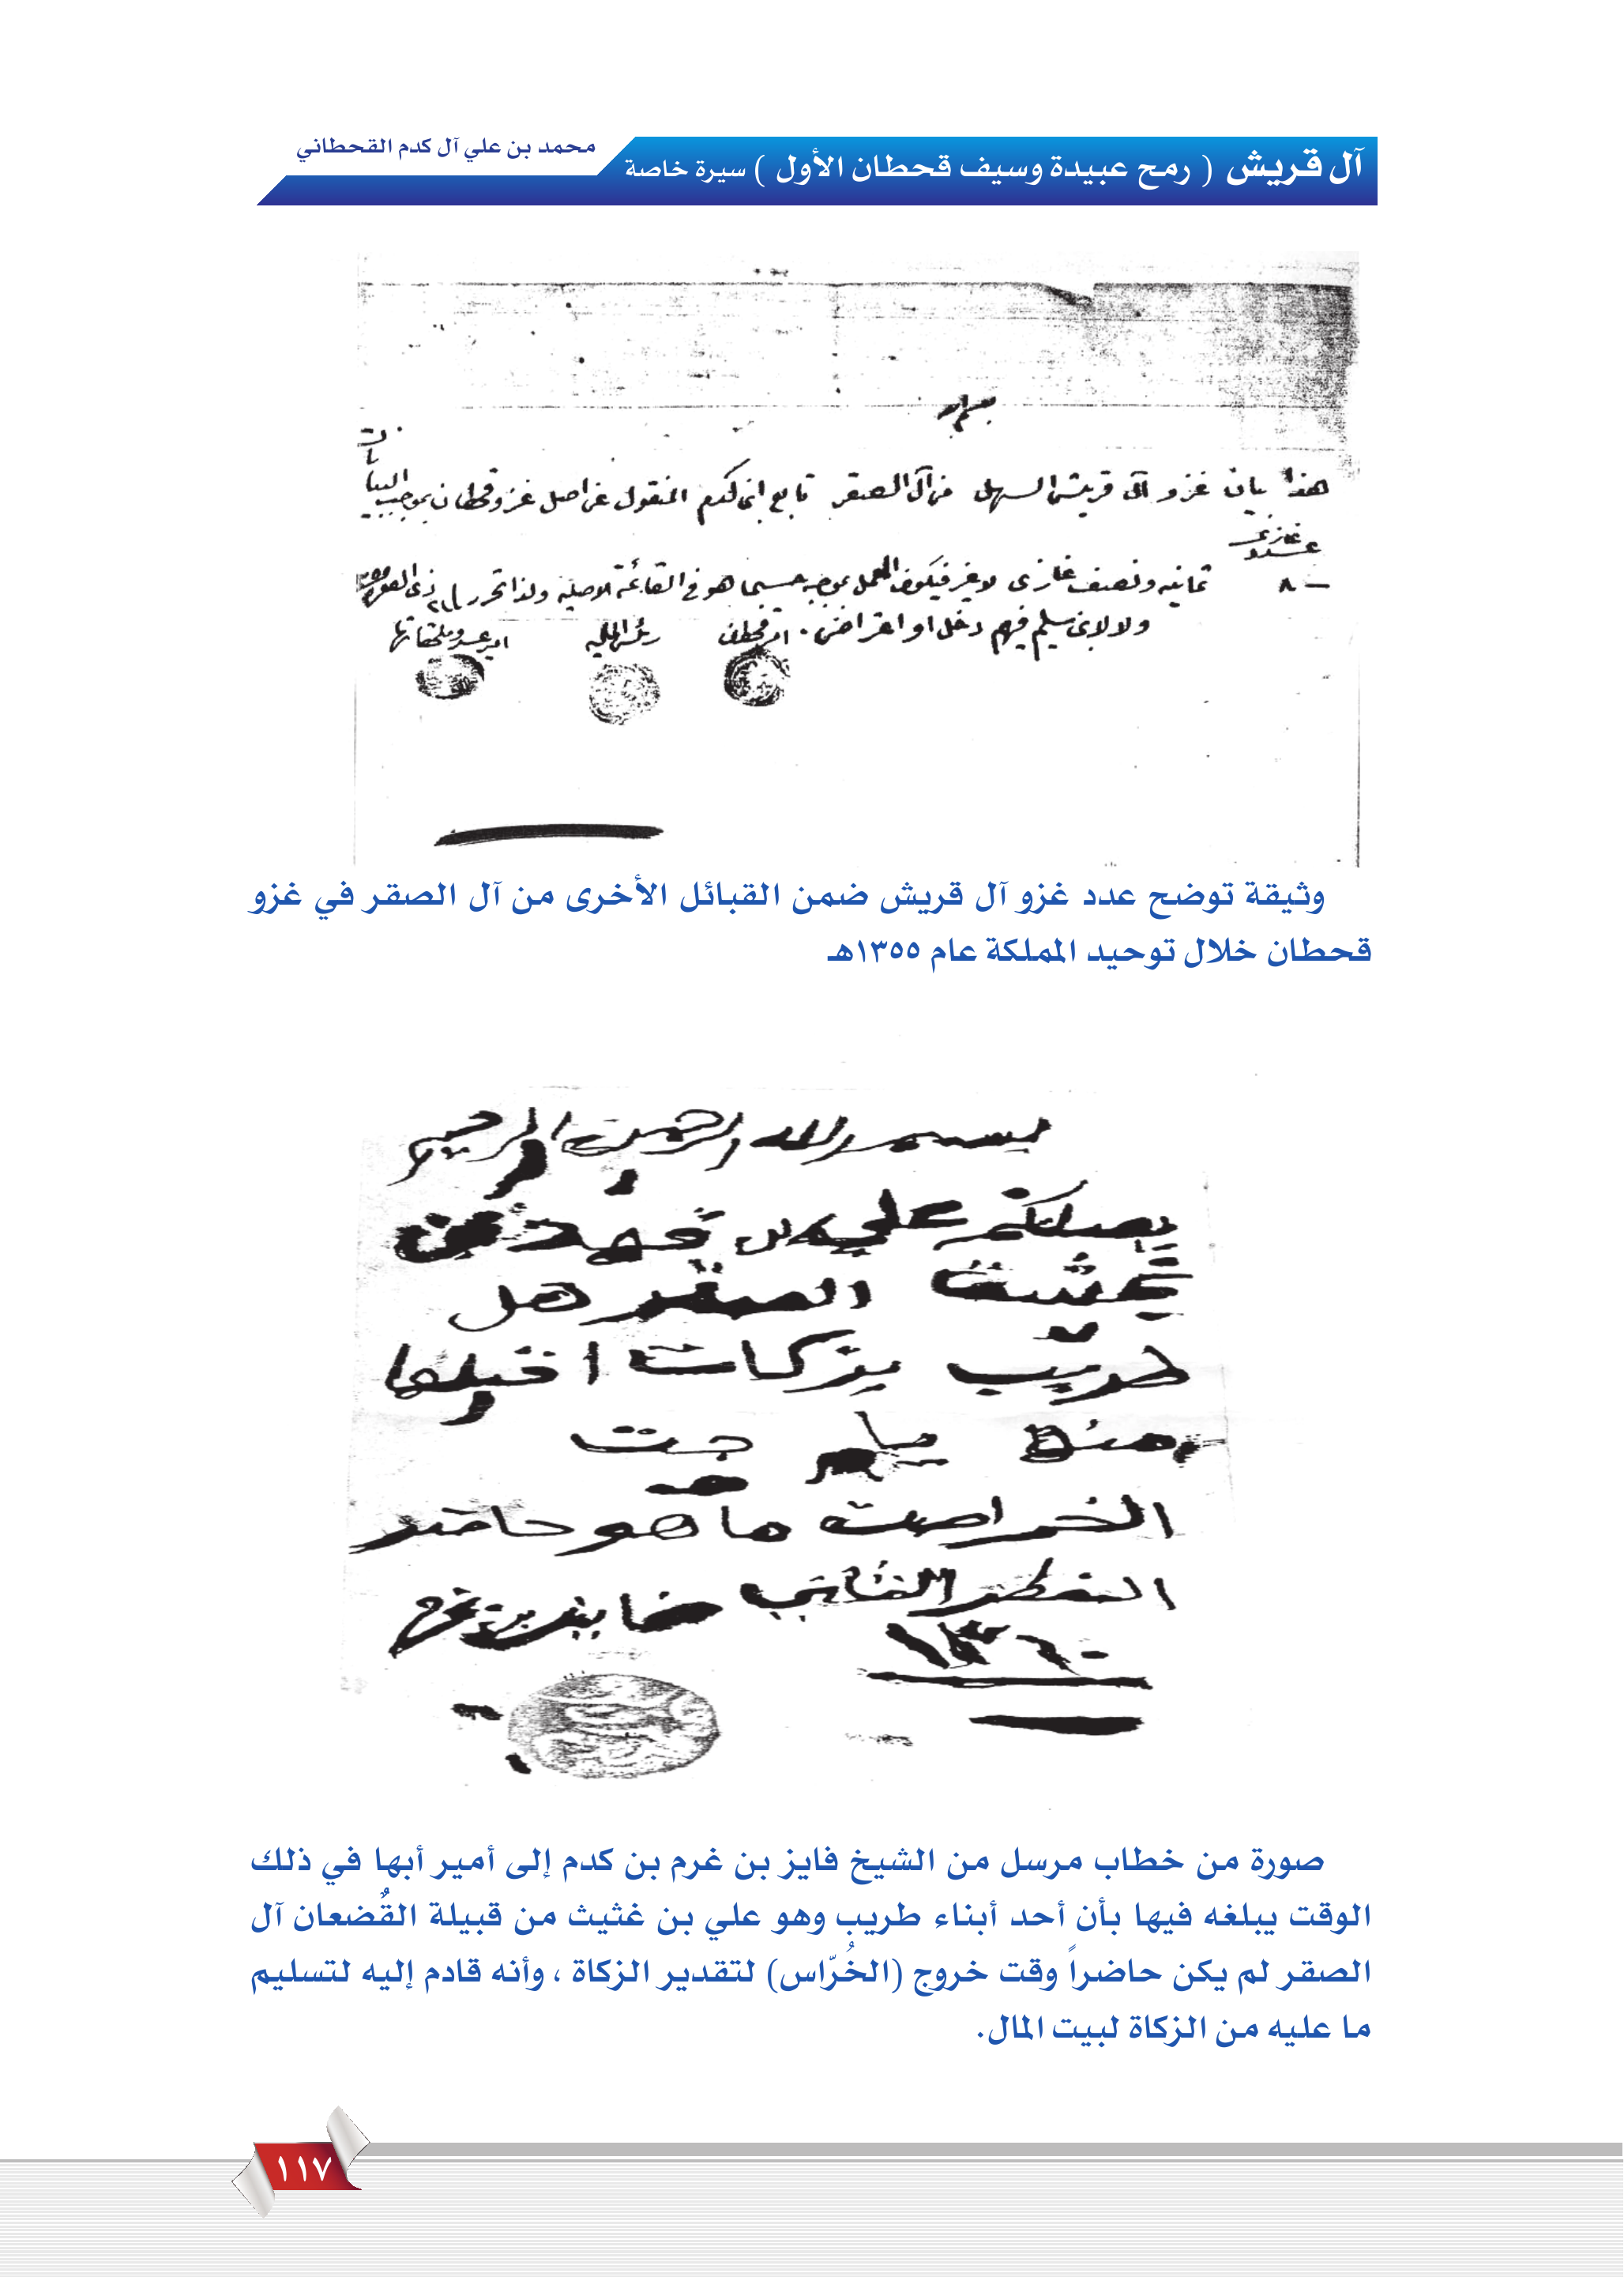 آل قريش ( رمح عبيدة وسيف قحطان الأول ) سيرة خاصة
محمد بن علي آل كدم القحطاني
هذا بيان غزو آل قريش السهل من آل الصقر تابع ابن كدم المنقول عن اصل غزو قحطان بموجب البيا
غازي
ثمانيه ونصف غازي لا غير فيكون العمل بموجبه حسبما هو في القائمة الاصلية ولذا تحرر
٨
ولا لابن سليم فيهم دخل او اعتراض . امير قحطان
رئيس الماليه
امير عسير وملحقاتها
وثيقة توضح عدد غزو آل قريش ضمن القبائل الأخرى من آل الصقر في غزو
قحطان خلال توحيد المملكة عام ١٣٥٥هـ
بسم الله الرحمن الرحيم
يصلكم علي بن فهد من
الصقر هل
طريب بزكات اقبلها
منه يا جت
الخراصت ما هو حاضر
١٣٦٠
صورة من خطاب مرسل من الشيخ فايز بن غرم بن كدم إلى أمير أبها في ذلك
الوقت يبلغه فيها بأن أحد أبناء طريب وهو علي بن غثيث من قبيلة القُضعان آل
الصقر لم يكن حاضراً وقت خروج (الخُرّاس) لتقدير الزكاة ، وأنه قادم إليه لتسليم
ما عليه من الزكاة لبيت المال.
١١٧